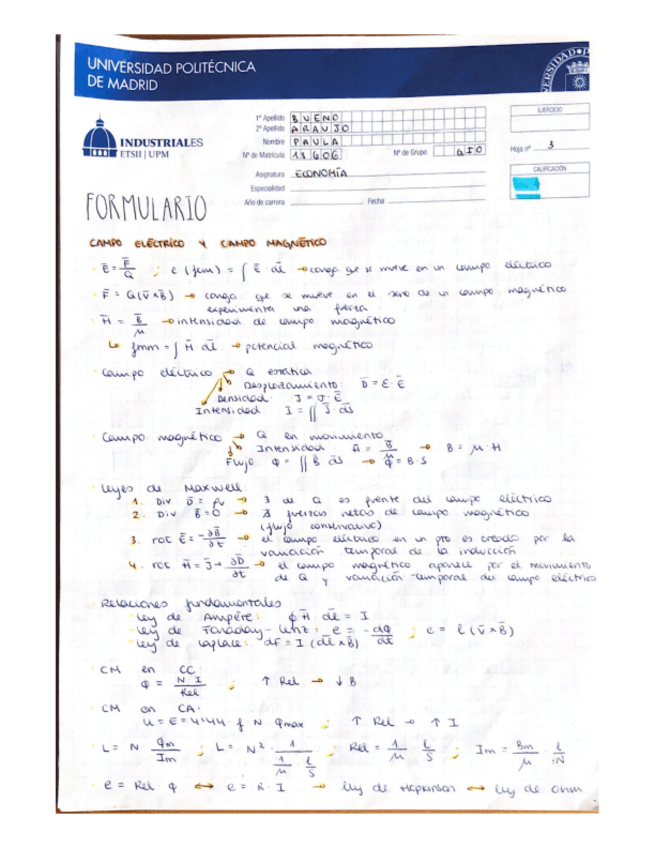 UNIVERSIDAD POLITÉCNICA
DE MADRID
INDUSTRIALES
ETSII | UPM
1º Apellido BUENO
2º Apellido ARAUJO
Nombre PAULA
Nº de Matrícula 13606 Nº de Grupo GIO
Asignatura ECONOMÍA
Especialidad
Año de carrera Fecha
EJERCICIO
Hoja nº 3
CALIFICACIÓN
FORMULARIO
CAMPO ELÉCTRICO Y CAMPO MAGNÉTICO
E̅ = F̅/Q ; e (fem) = ∫ E̅ · dl̅ → carga que se mueve en un campo eléctrico
F̅ = Q(v̅×B̅) → carga que se mueve en el seno de un campo magnético
experimenta una fuerza
H̅ = B̅/μ → intensidad de campo magnético
↳ fmm = ∫ H̅ · dl̅ → potencial magnético
Campo eléctrico → Q estática
Desplazamiento: D̅ = ε · E̅
Densidad: J̅ = σ · E̅
Intensidad I = ∬ J̅ · ds̅
Campo magnético → Q en movimiento
Intensidad H̅ = B̅/μ → B = μ · H
Flujo φ = ∬ B̅ ds̅ → φ = B · S
Leyes de Maxwell:
1. Div D̅ = ρv → ∃ de Q es fuente del campo eléctrico
2. Div B̅ = 0 → ∄ fuentes netas de campo magnético
(flujo conservativo)
3. rot E̅ = -∂B̅/∂t → el campo eléctrico en un pto es creado por la
variación temporal de la inducción
4. rot H̅ = J̅ + ∂D̅/∂t → el campo magnético aparece por el movimiento
de Q y variación temporal del campo eléctrico
Relaciones fundamentales
Ley de Ampère: ∮ H̅ · dl̅ = I
Ley de Faraday-Lenz: e = -dφ/dt ; e = l (v̅×B̅)
Ley de Laplace: dF̅ = I (dl̅×B̅)
CM en CC:
φ = N·I/Rel ; ↑ Rel → ↓ B
CM en CA:
U = E = 4'44 · f · N φmax ; ↑ Rel → ↑ I
L = N · φm/Im ; L = N² · 1/(1/μ · l/S) ; Rel = 1/μ · l/S ; Im = Bm/μ · l/N
e = Rel · φ ↔ e = R · I → ley de Hopkinson ↔ ley de Ohm